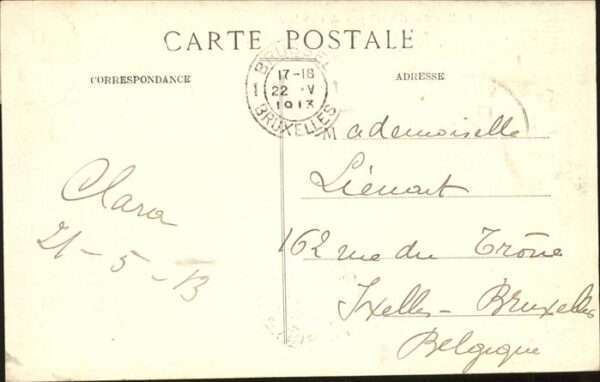 CARTE POSTALE
CORRESPONDANCE
ADRESSE
BRUSSEL
1 17-18
22 V
1913
BRUXELLES
Mademoiselle
Liénart
162 rue du Trône
Ixelles - Bruxelles
Belgique
Clara
21-5-13